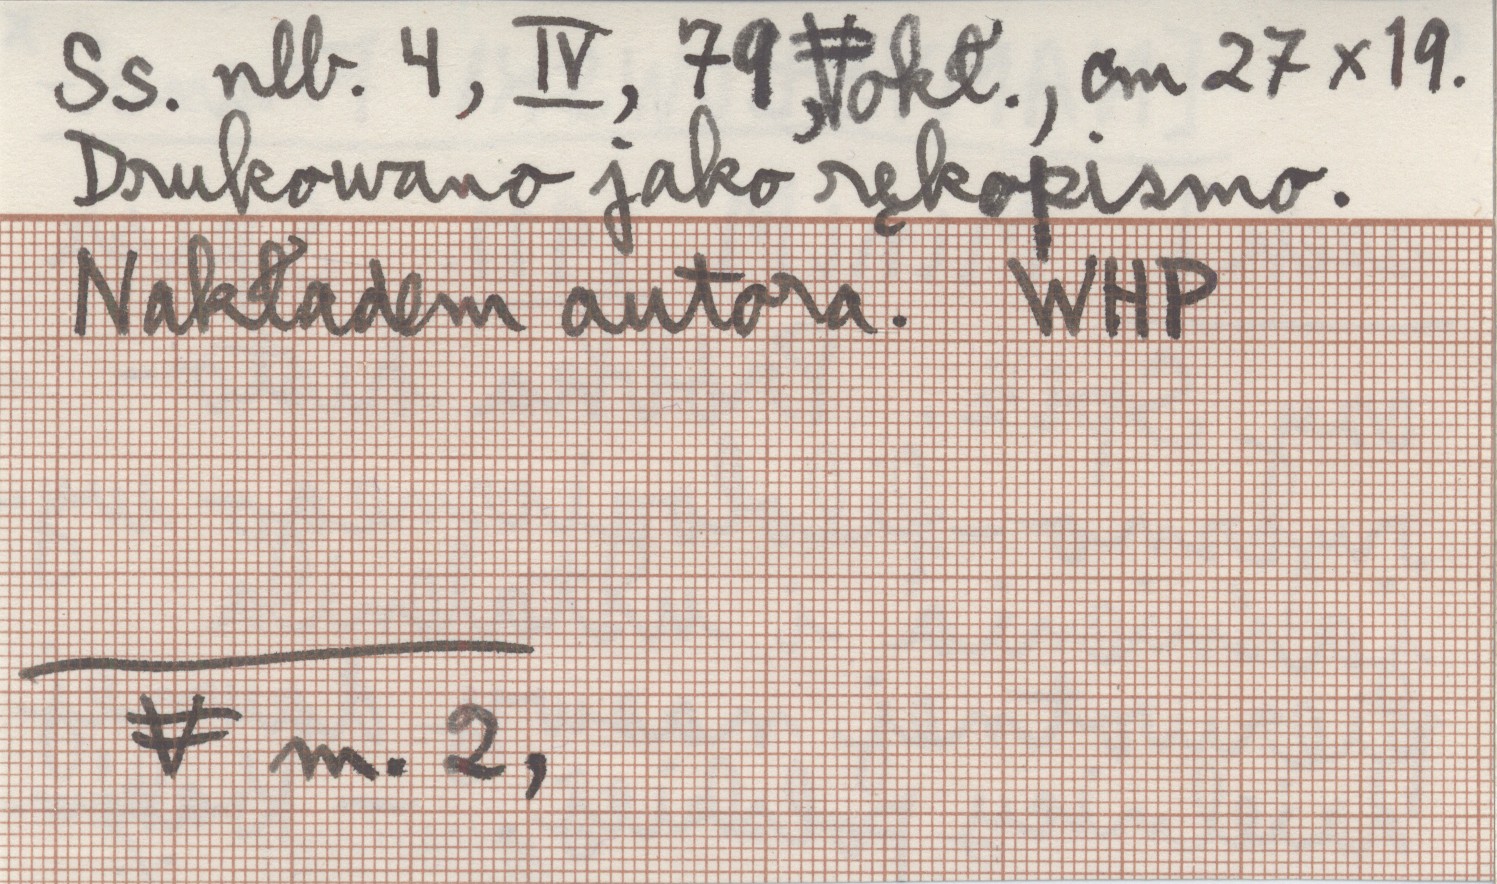 Ss. nlb. 4, IV, 79, okł., cm 27 x 19.
Drukowano jako rękopismo.
Nakładem autora. WHP
m. 2,